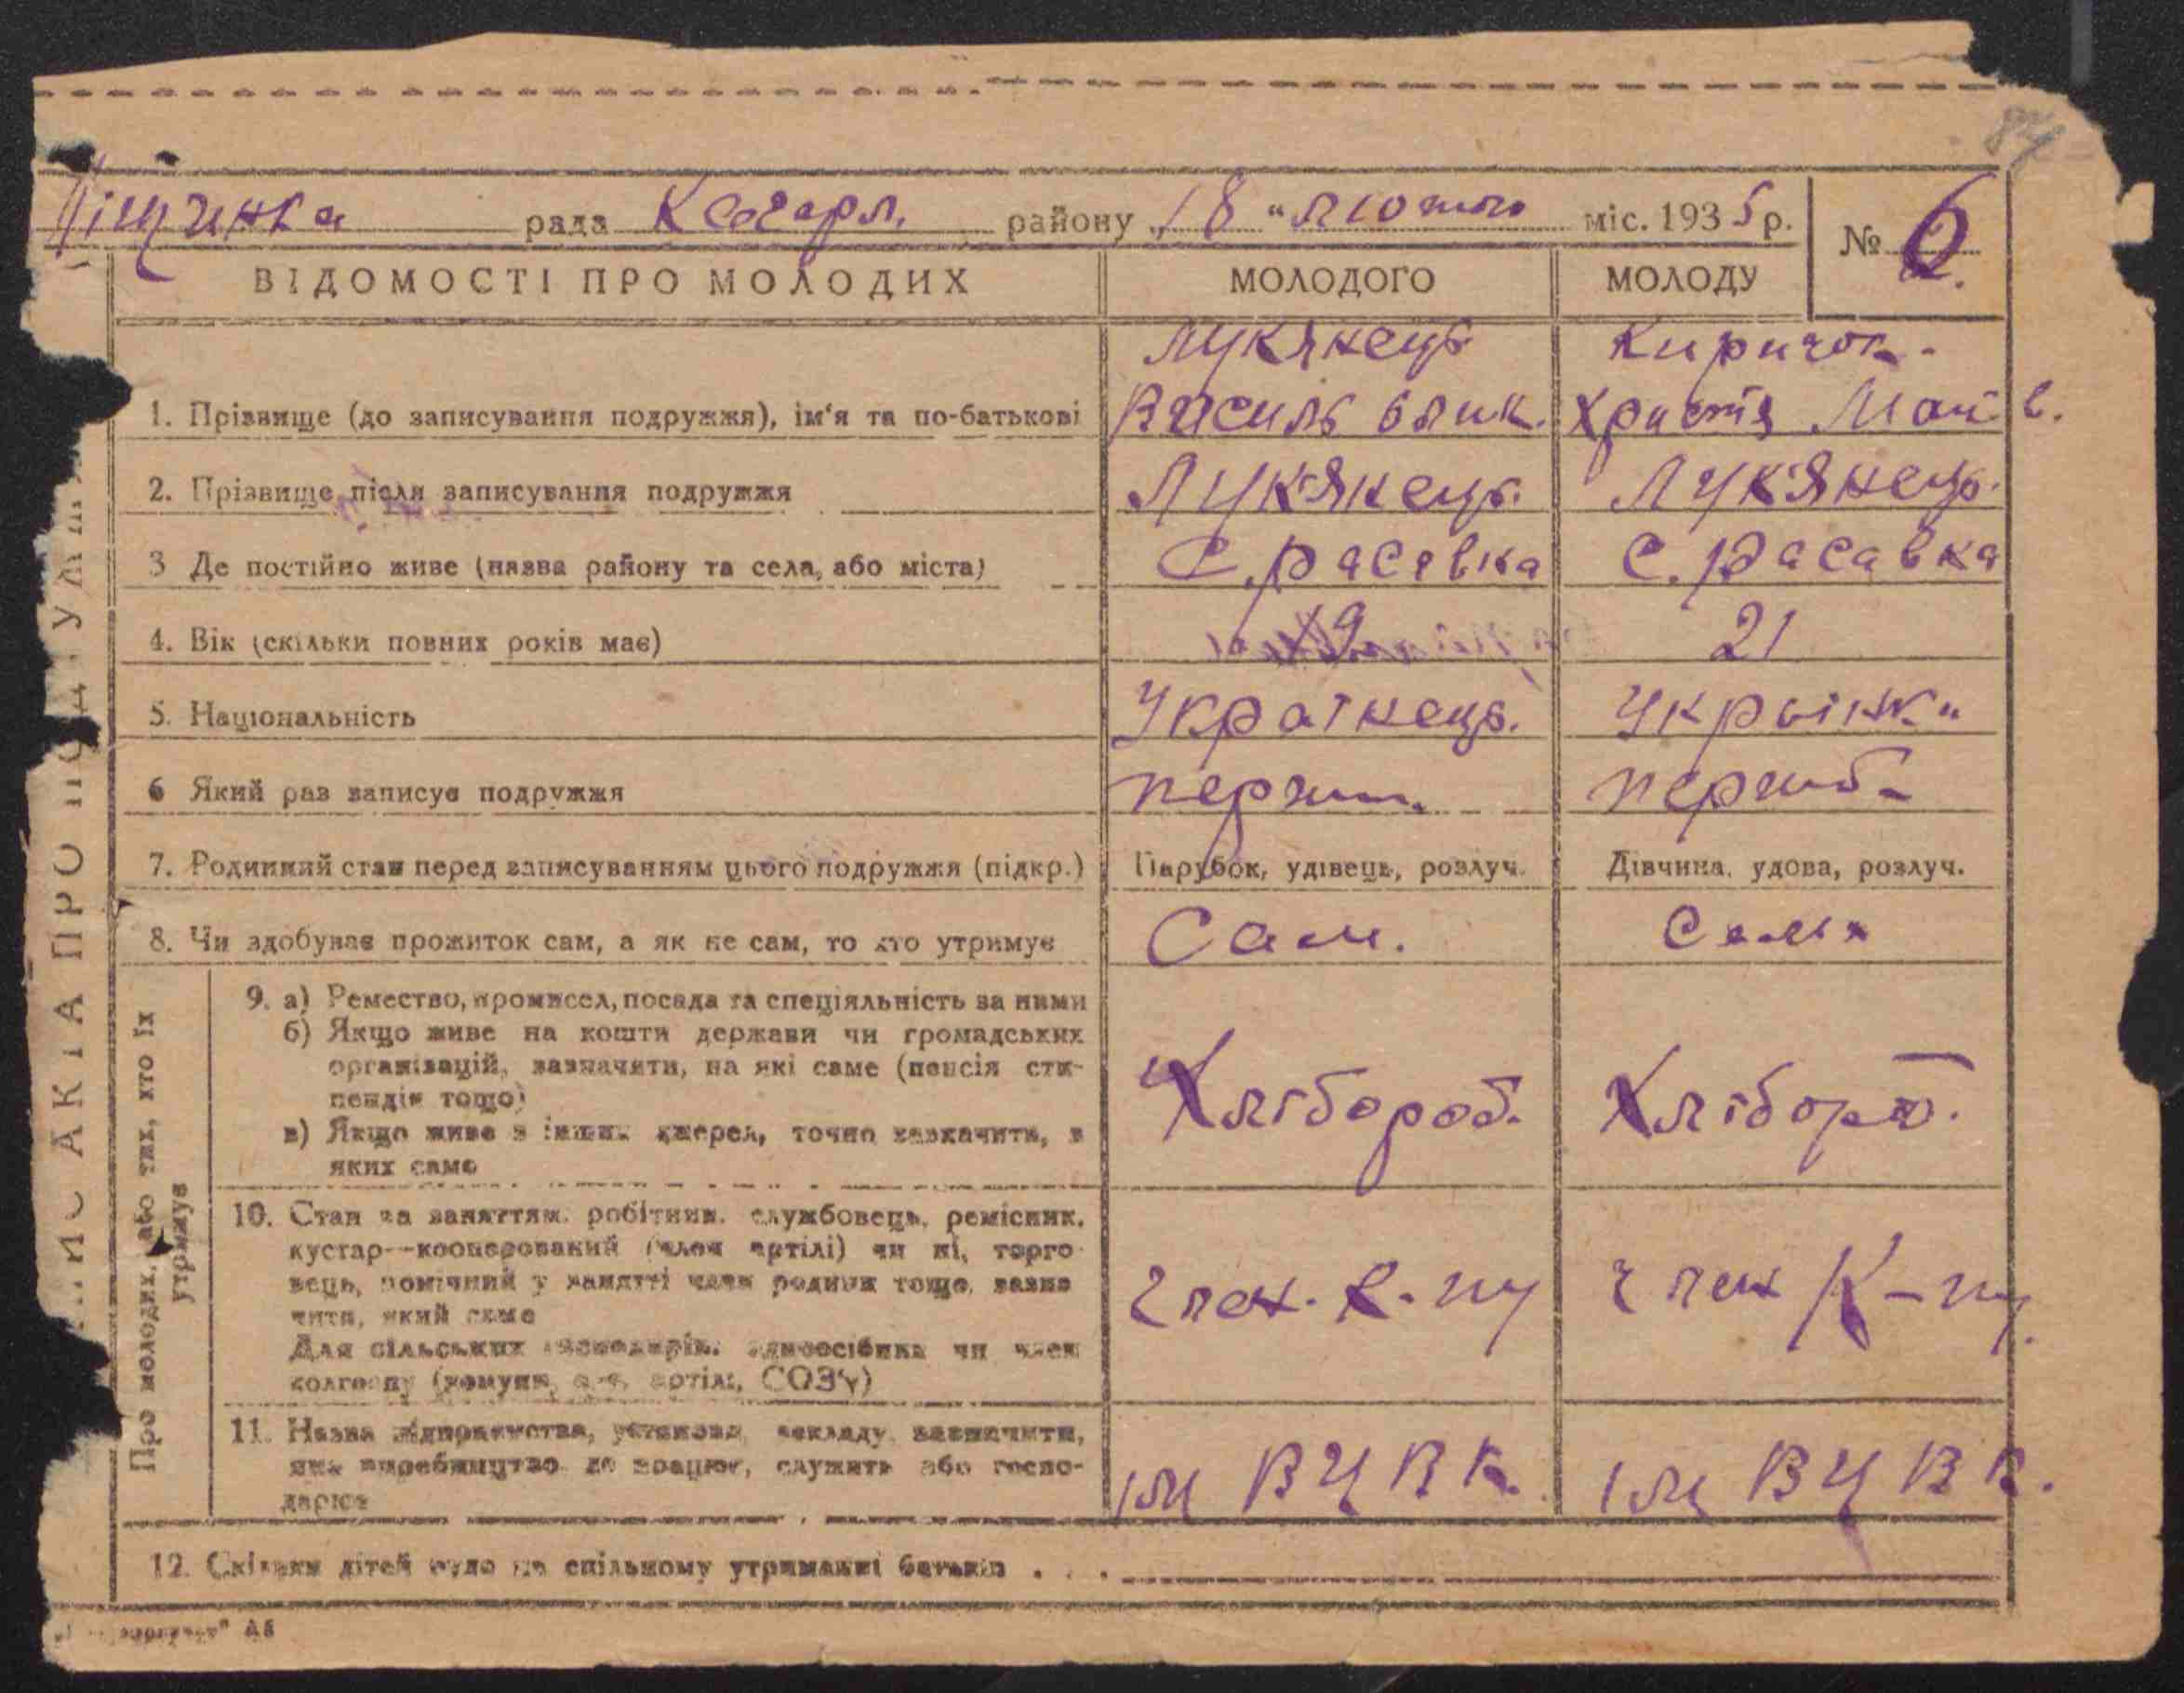 84
Піщинка рада Кагарл. району „18“ лютого міс. 1935 р. № 6.
ВІДОМОСТІ ПРО МОЛОДИХ МОЛОДОГО МОЛОДУ
Лукянець Киричок
1. Прізвище (до записування подружжя), ім'я та по-батькові Василь Олик. Христя Мат в.
2. Прізвище після записування подружжя Лук'янець. Лук'янець.
3 Де постійно живе (назва району та села, або міста) С. Расавка С. Расавка
4. Вік (скільки повних років має) 19 21
5. Національність Українець. Укрыінка
6 Який раз записує подружжя перший. перший
7. Родинний стан перед записуванням цього подружжя (підкр.) Парубок, удівець, розлуч. Дівчина, удова, розлуч.
8. Чи здобуває прожиток сам, а як не сам, то хто утримує Сам. Сама
Про молодих, або тих, хто їх утримує
9. а) Ремество, промисел, посада та спеціяльність за ними
б) Якщо живе на кошти держави чи громадських
організацій, зазначити, на які саме (пенсія сти-
пендія тощо)
в) Якщо живе з інших джерел, точно зазначити, з
яких саме
Хлібороб. Хлібороб.
10. Стан за заняттям: робітник, службовець, ремісник,
кустар--кооперований (член артілі) чи ні, торго
вець, помічний у занятті член родини тощо, зазна
чити, який саме
Для сільських господарів: одноосібник чи член
колгоспу (комуни, с.-г. артілі, СОЗ'у)
член. К-пу член К-пу
11. Назва підприємства, установи, закладу, зазначити,
яке виробництво де працює, служить або госпо-
дарює
ім ВЦВК. ім ВЦВК.
12. Скільки дітей було на спільному утриманні батьків . . .